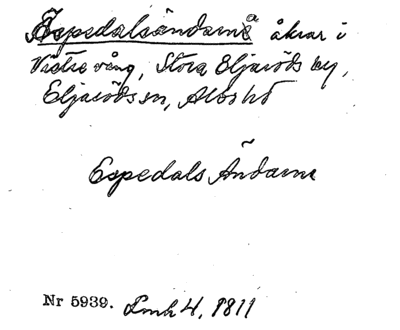 Espedalsändarne åkrar i
Västre vång, Stora Eljaröds by,
Eljaröds sn, Albo hd
Espedals Ändarne
Nr 5939. Lmh 4, 1811